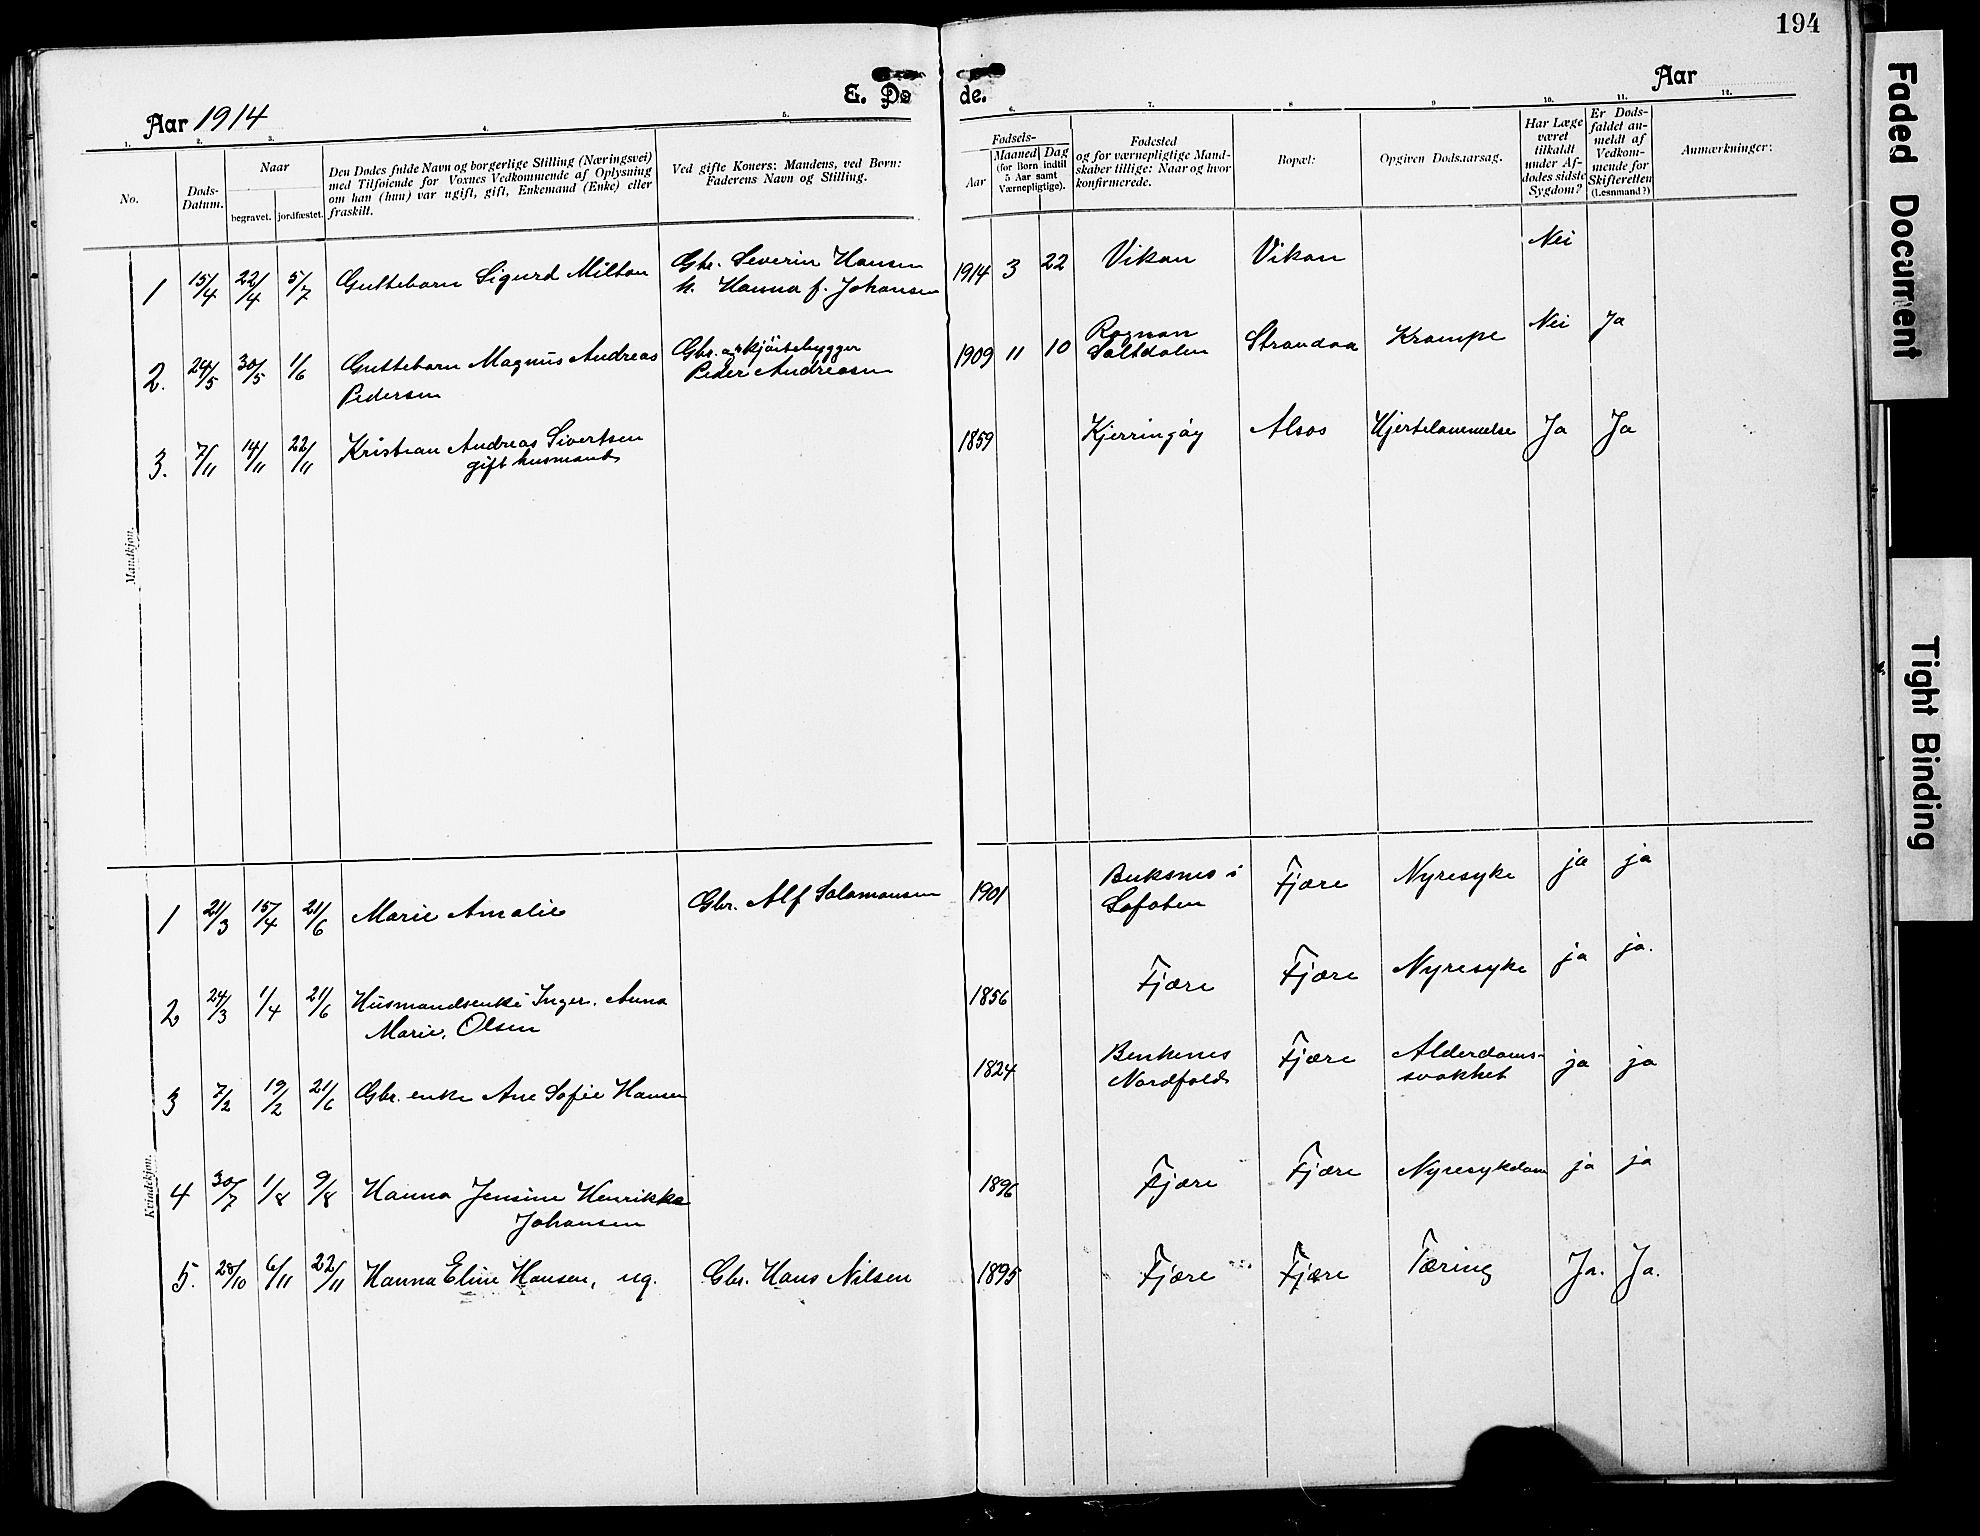 194
Aar 1914
E. Dø de.
Aar
1. 2. 3. 4. 5. 6. 7. 8 9 10. 11. 12.
No.
Døds-
Datum.
Naar
begravet. jordfæstet.
Den Dødes fulde Navn og borgerlige Stilling (Næringsvei)
med Tilføiende for Voxnes Vedkommende af Oplysning
om han (hun) var ugift, gift, Enkemand (Enke) eller
fraskilt.
Ved gifte Koner: Mandens, ved Børn:
Faderens Navn og Stilling.
Fødsels-
Aar
Maaned Dag
(for Børn indtil
5 Aar samt
Værnepligtige).
Fødested
og for værnepligtige Mand-
skaber tillige: Naar og hvor
konfirmerede.
Bopæl:
Opgiven Dødsaarsag.
Har Læge
været
tilkaldt
under Af-
dødes sidste
Sygdom?
Er Døds-
faldet an-
meldt af
Vedkom-
mende for
Skifteretten
(Lensmand?)
Anmærkninger:
Mandkjøn.
1 15/4 22/4 5/7 Guttebarn Sigurd Milton Gbr. Severin Hansen 1914 3 22 Vikan Vikan Nei
h. Hanna f. Johansen
2. 24/5 30/5 1/6 Guttebarn Magnus Andreas Gbr. og kjöitebygger 1909 11 10 Rognan Strandaa Krampe Nei Ja
Pedersen Peder Andreasen Saltdalen
3. 7/11 14/11 22/11 Kristian Andreas Sivertsen 1859 Kjerringöy Alsos Hjertelammelse Ja Ja
gift husmand
Kvindekjøn.
1 21/3 15/4 21/6 Marie Amalie Gbr. Alf Salamonsen 1901 Buksnes i Fjære Nyresyke ja ja
Lofoten
2 24/3 1/4 21/6 Husmandsenke Inger. Anna 1856 Fjære Fjære Nyresyke ja ja.
Marie. Olsen
3 7/2 19/2 21/6 Gbr. enke Ane Sofie Hansen 1824 Benkenes Fjære Alderdoms- ja ja
Nordfold svakhet
4 30/7 1/8 9/8 Hanna Jensine Henrikka 1896 Fjære Fjære Nyresykdom ja ja
Johansen
5. 28/10 6/11 22/11 Hanna Eline Hansen, ug. Gbr. Hans Nilsen 1895 Fjære Fjære Tæring Ja. Ja.
Faded Document
Tight Binding